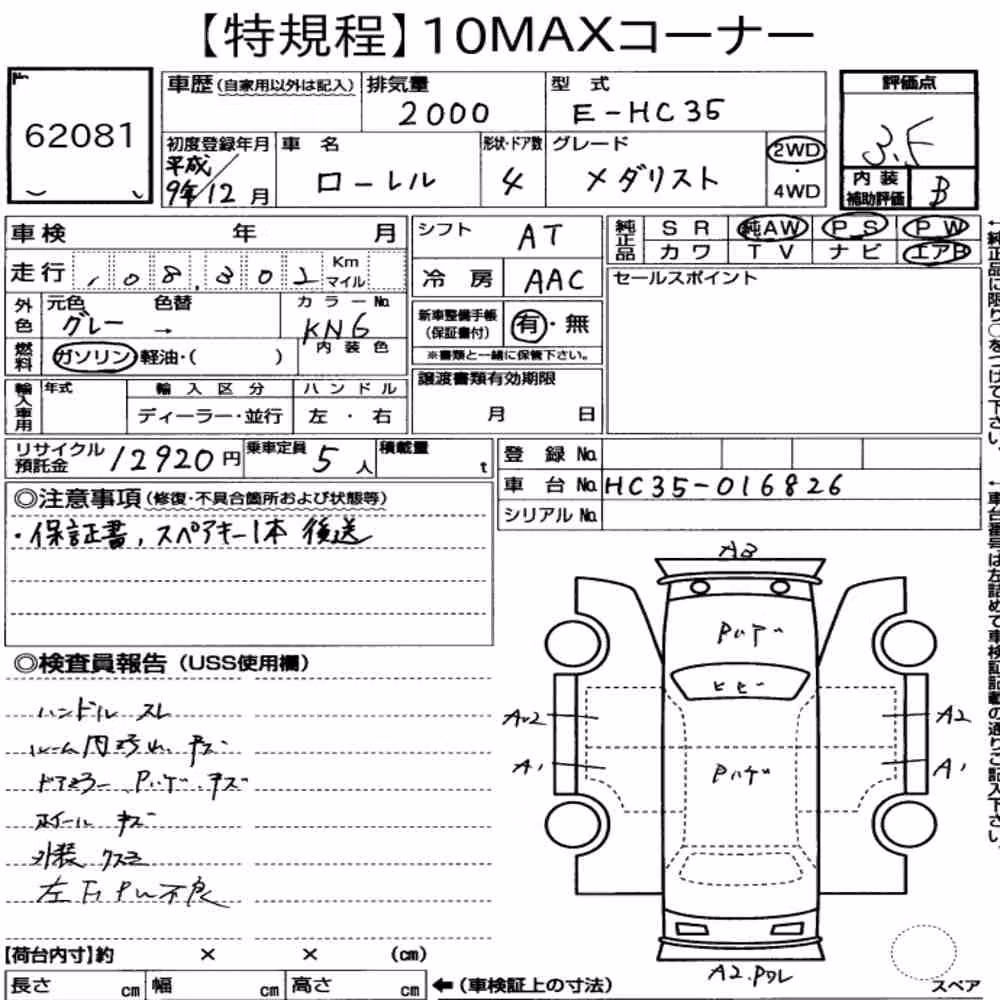 【特規程】10MAXコーナー
62081
車歴(自家用以外は記入) 排気量 2000 型式 E-HC35
評価点 3.5
初度登録年月 平成9年/12月 車名 ローレル 形状・ドア数 4 グレード メダリスト 2WD・4WD
内装補助評価 B
車検 年 月
シフト AT
純正品 SR 純AW PS PW
カワ TV ナビ エアB
走行 108,302 Km マイル
冷房 AAC
セールスポイント
外色 元色 グレー → 色替 カラーNo. KN6
内装色
新車整備手帳(保証書付) 有・無
※書類と一緒に保管下さい。
燃料 ガソリン・軽油・( )
輸入車用 年式 輸入区分 ディーラー・並行 ハンドル 左・右
譲渡書類有効期限 月 日
リサイクル預託金 12920円 乗車定員 5人 積載量 t
登録No.
車台No. HC35-016826
シリアルNo.
◎注意事項(修復・不具合箇所および状態等)
・保証書,スペアキー1本 後送
◎検査員報告(USS使用欄)
ハンドル スレ
ルーム内汚れ、キズ
ドアミラー Pハゲ、キズ
ホイール キズ
外装 クスミ
不良
A3
Pハゲ
ヒビ
A2
A1
Pハゲ
A2
A1
A2.
スペア
【荷台内寸】約 × × (cm)
長さ cm 幅 cm 高さ cm ←(車検証上の寸法)
←純正品に限り○をつけて下さい。
←車台番号は左詰めで車検証記載の通りご記入下さい。